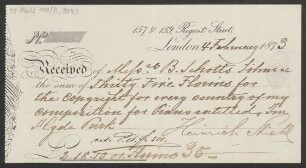 157 & 159, Regent Street,
London 4 February 1873
Received of Messrs B. Schott's Söhne
the sum of Thirty Five Florins for
the Copyright for every country of my
composition for Piano entitled, In
Hyde Park
Heinrich Stiehl
Florins 35